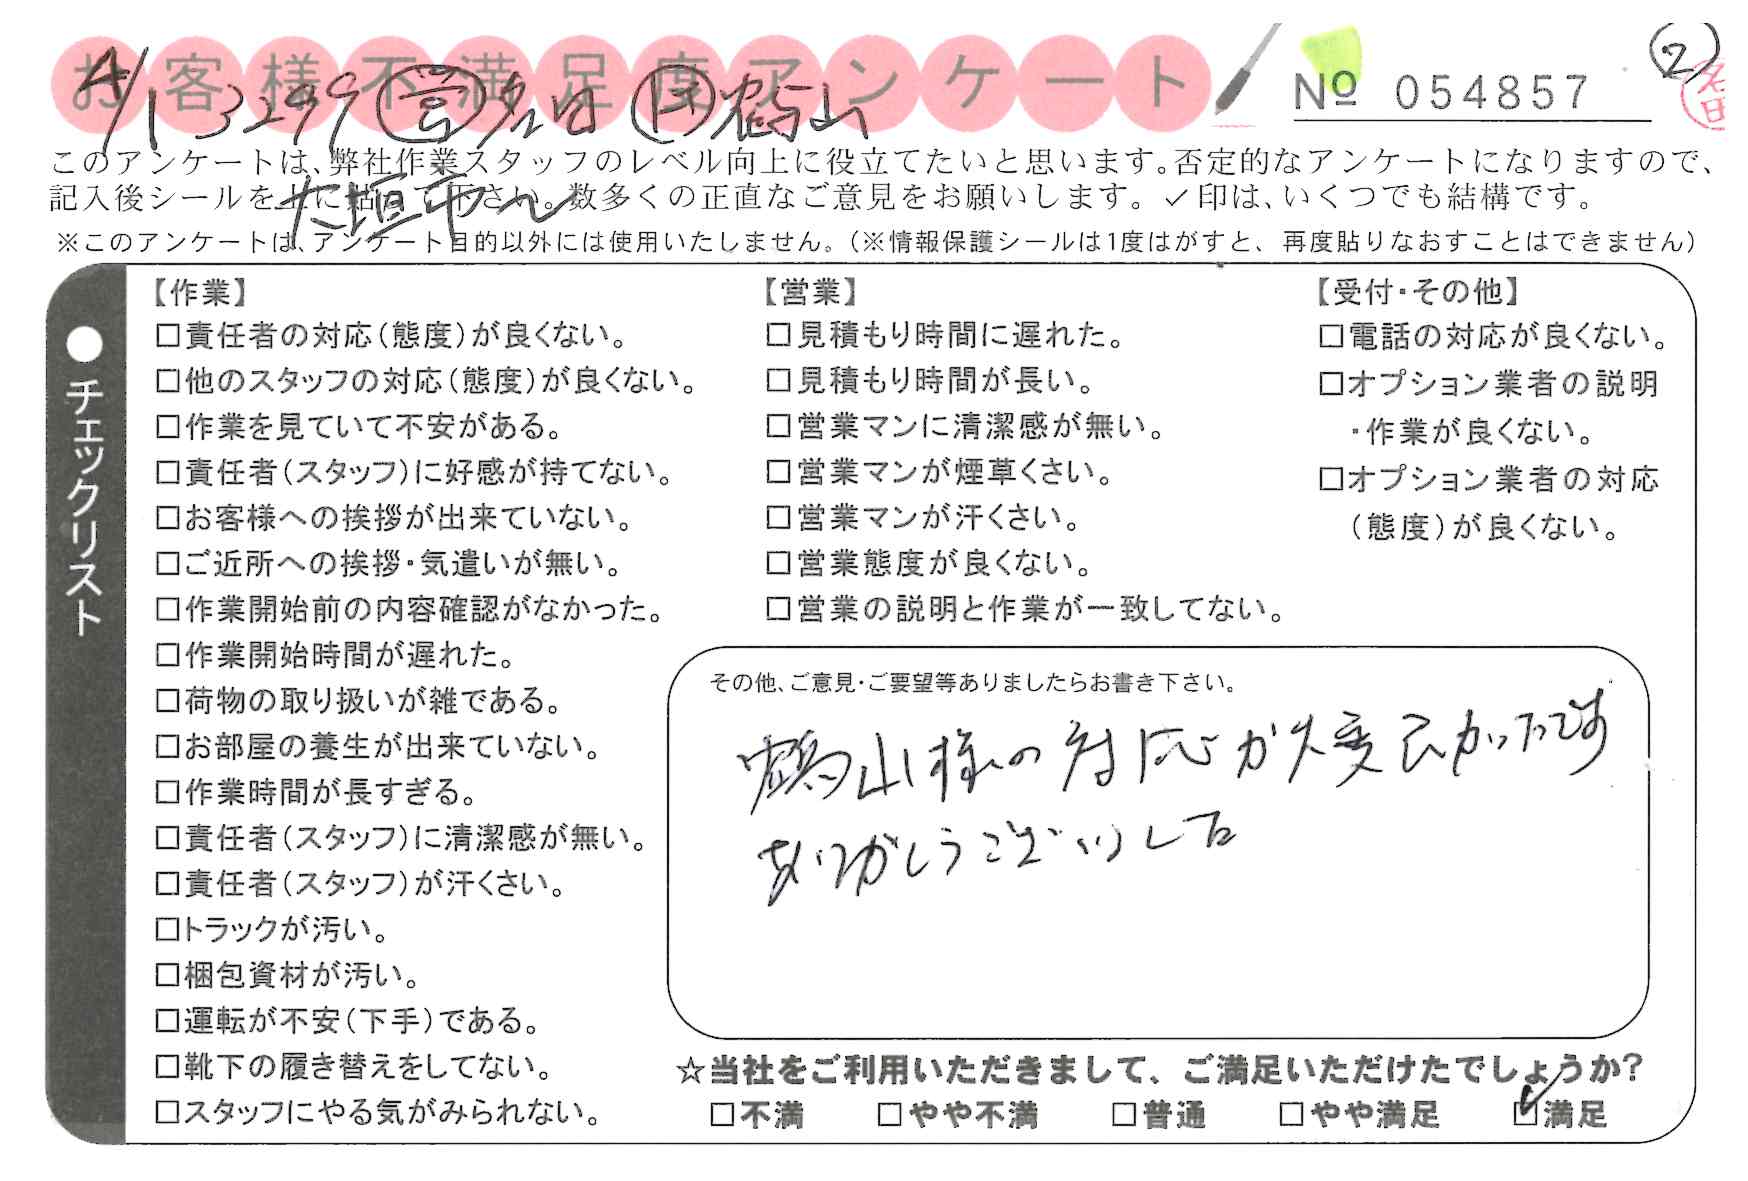 お客様不満足度アンケート
№ 054857
②
名日
4/1 3299 営 名日 作 鶴山
このアンケートは、弊社作業スタッフのレベル向上に役立てたいと思います。否定的なアンケートになりますので、
記入後シールを上に貼って下さい。数多くの正直なご意見をお願いします。✓印は、いくつでも結構です。
大垣市
※このアンケートは、アンケート目的以外には使用いたしません。（※情報保護シールは1度はがすと、再度貼りなおすことはできません）
●チェックリスト
【作業】
□責任者の対応（態度）が良くない。
□他のスタッフの対応（態度）が良くない。
□作業を見ていて不安がある。
□責任者（スタッフ）に好感が持てない。
□お客様への挨拶が出来ていない。
□ご近所への挨拶・気遣いが無い。
□作業開始前の内容確認がなかった。
□作業開始時間が遅れた。
□荷物の取り扱いが雑である。
□お部屋の養生が出来ていない。
□作業時間が長すぎる。
□責任者（スタッフ）に清潔感が無い。
□責任者（スタッフ）が汗くさい。
□トラックが汚い。
□梱包資材が汚い。
□運転が不安（下手）である。
□靴下の履き替えをしてない。
□スタッフにやる気がみられない。
【営業】
□見積もり時間に遅れた。
□見積もり時間が長い。
□営業マンに清潔感が無い。
□営業マンが煙草くさい。
□営業マンが汗くさい。
□営業態度が良くない。
□営業の説明と作業が一致してない。
【受付・その他】
□電話の対応が良くない。
□オプション業者の説明
・作業が良くない。
□オプション業者の対応
（態度）が良くない。
その他、ご意見・ご要望等ありましたらお書き下さい。
鶴山様の対応が大変良かったです
ありがとうございました
☆当社をご利用いただきまして、ご満足いただけたでしょうか？
□不満 □やや不満 □普通 □やや満足 ☑満足